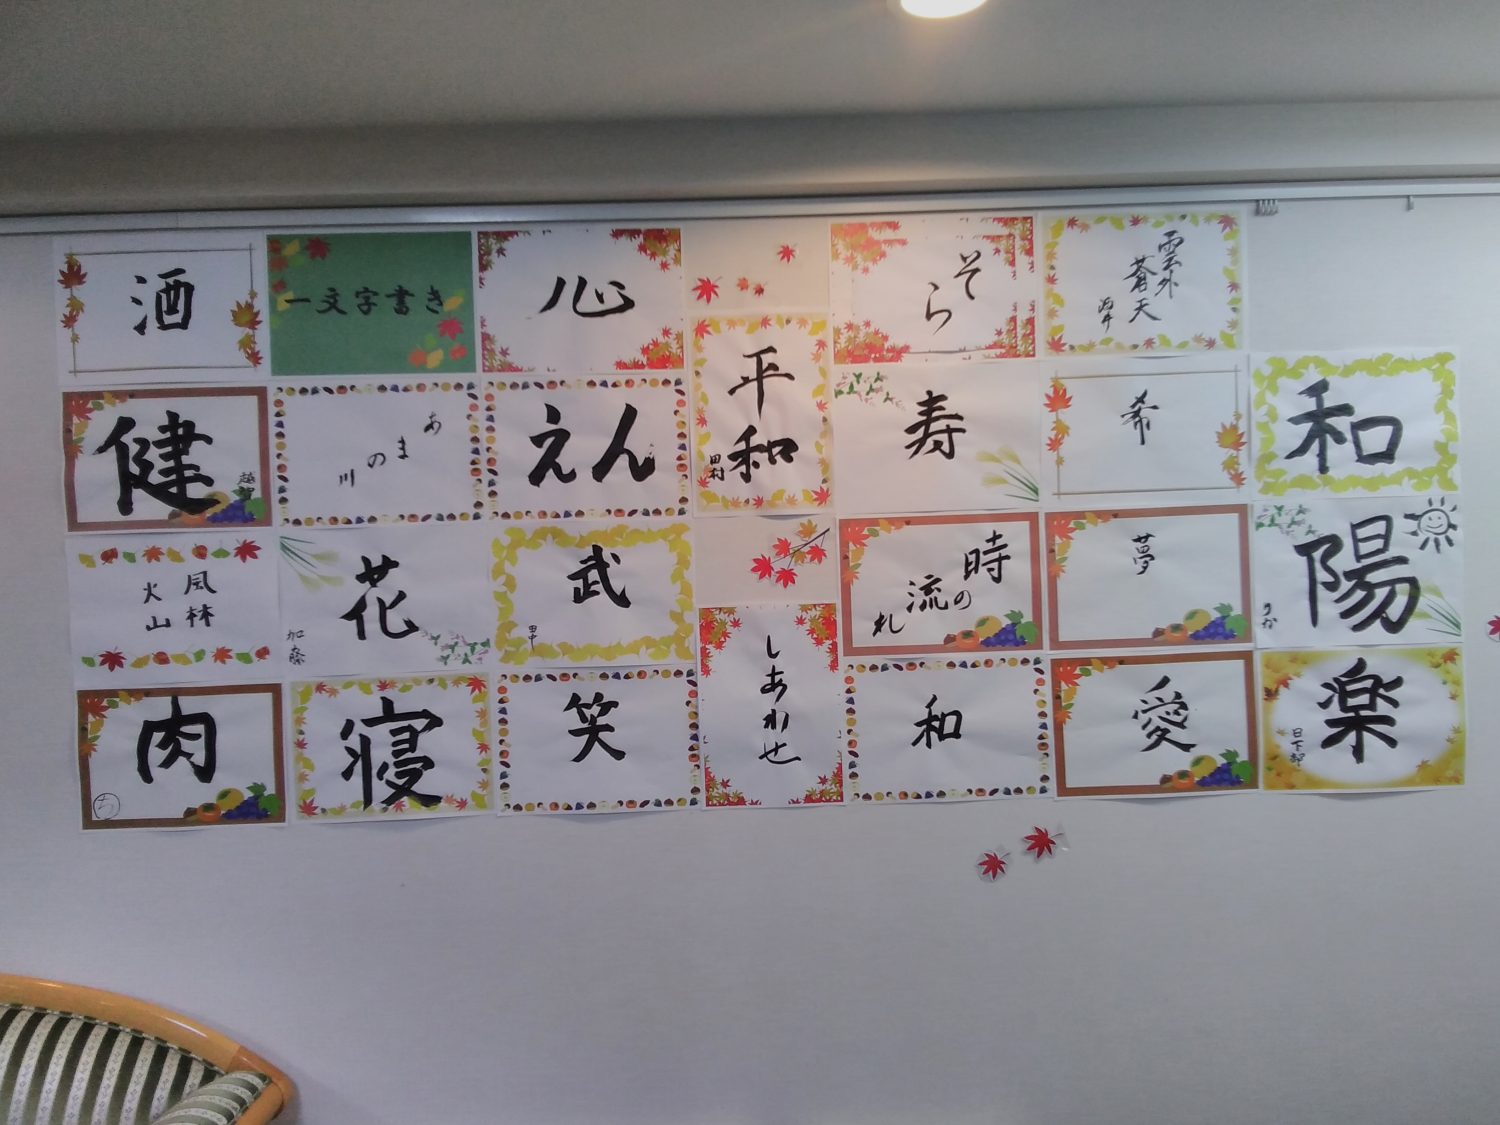 酒
一文字書き
心
平和
田村
そら
雲外
蒼天
健
越智
あまの川
えん
寿
希
和
風林
火山
花
加藤
武
田中
時の
流れ
夢
陽
りか
肉
寝
笑
しあわせ
和
愛
楽
日下部